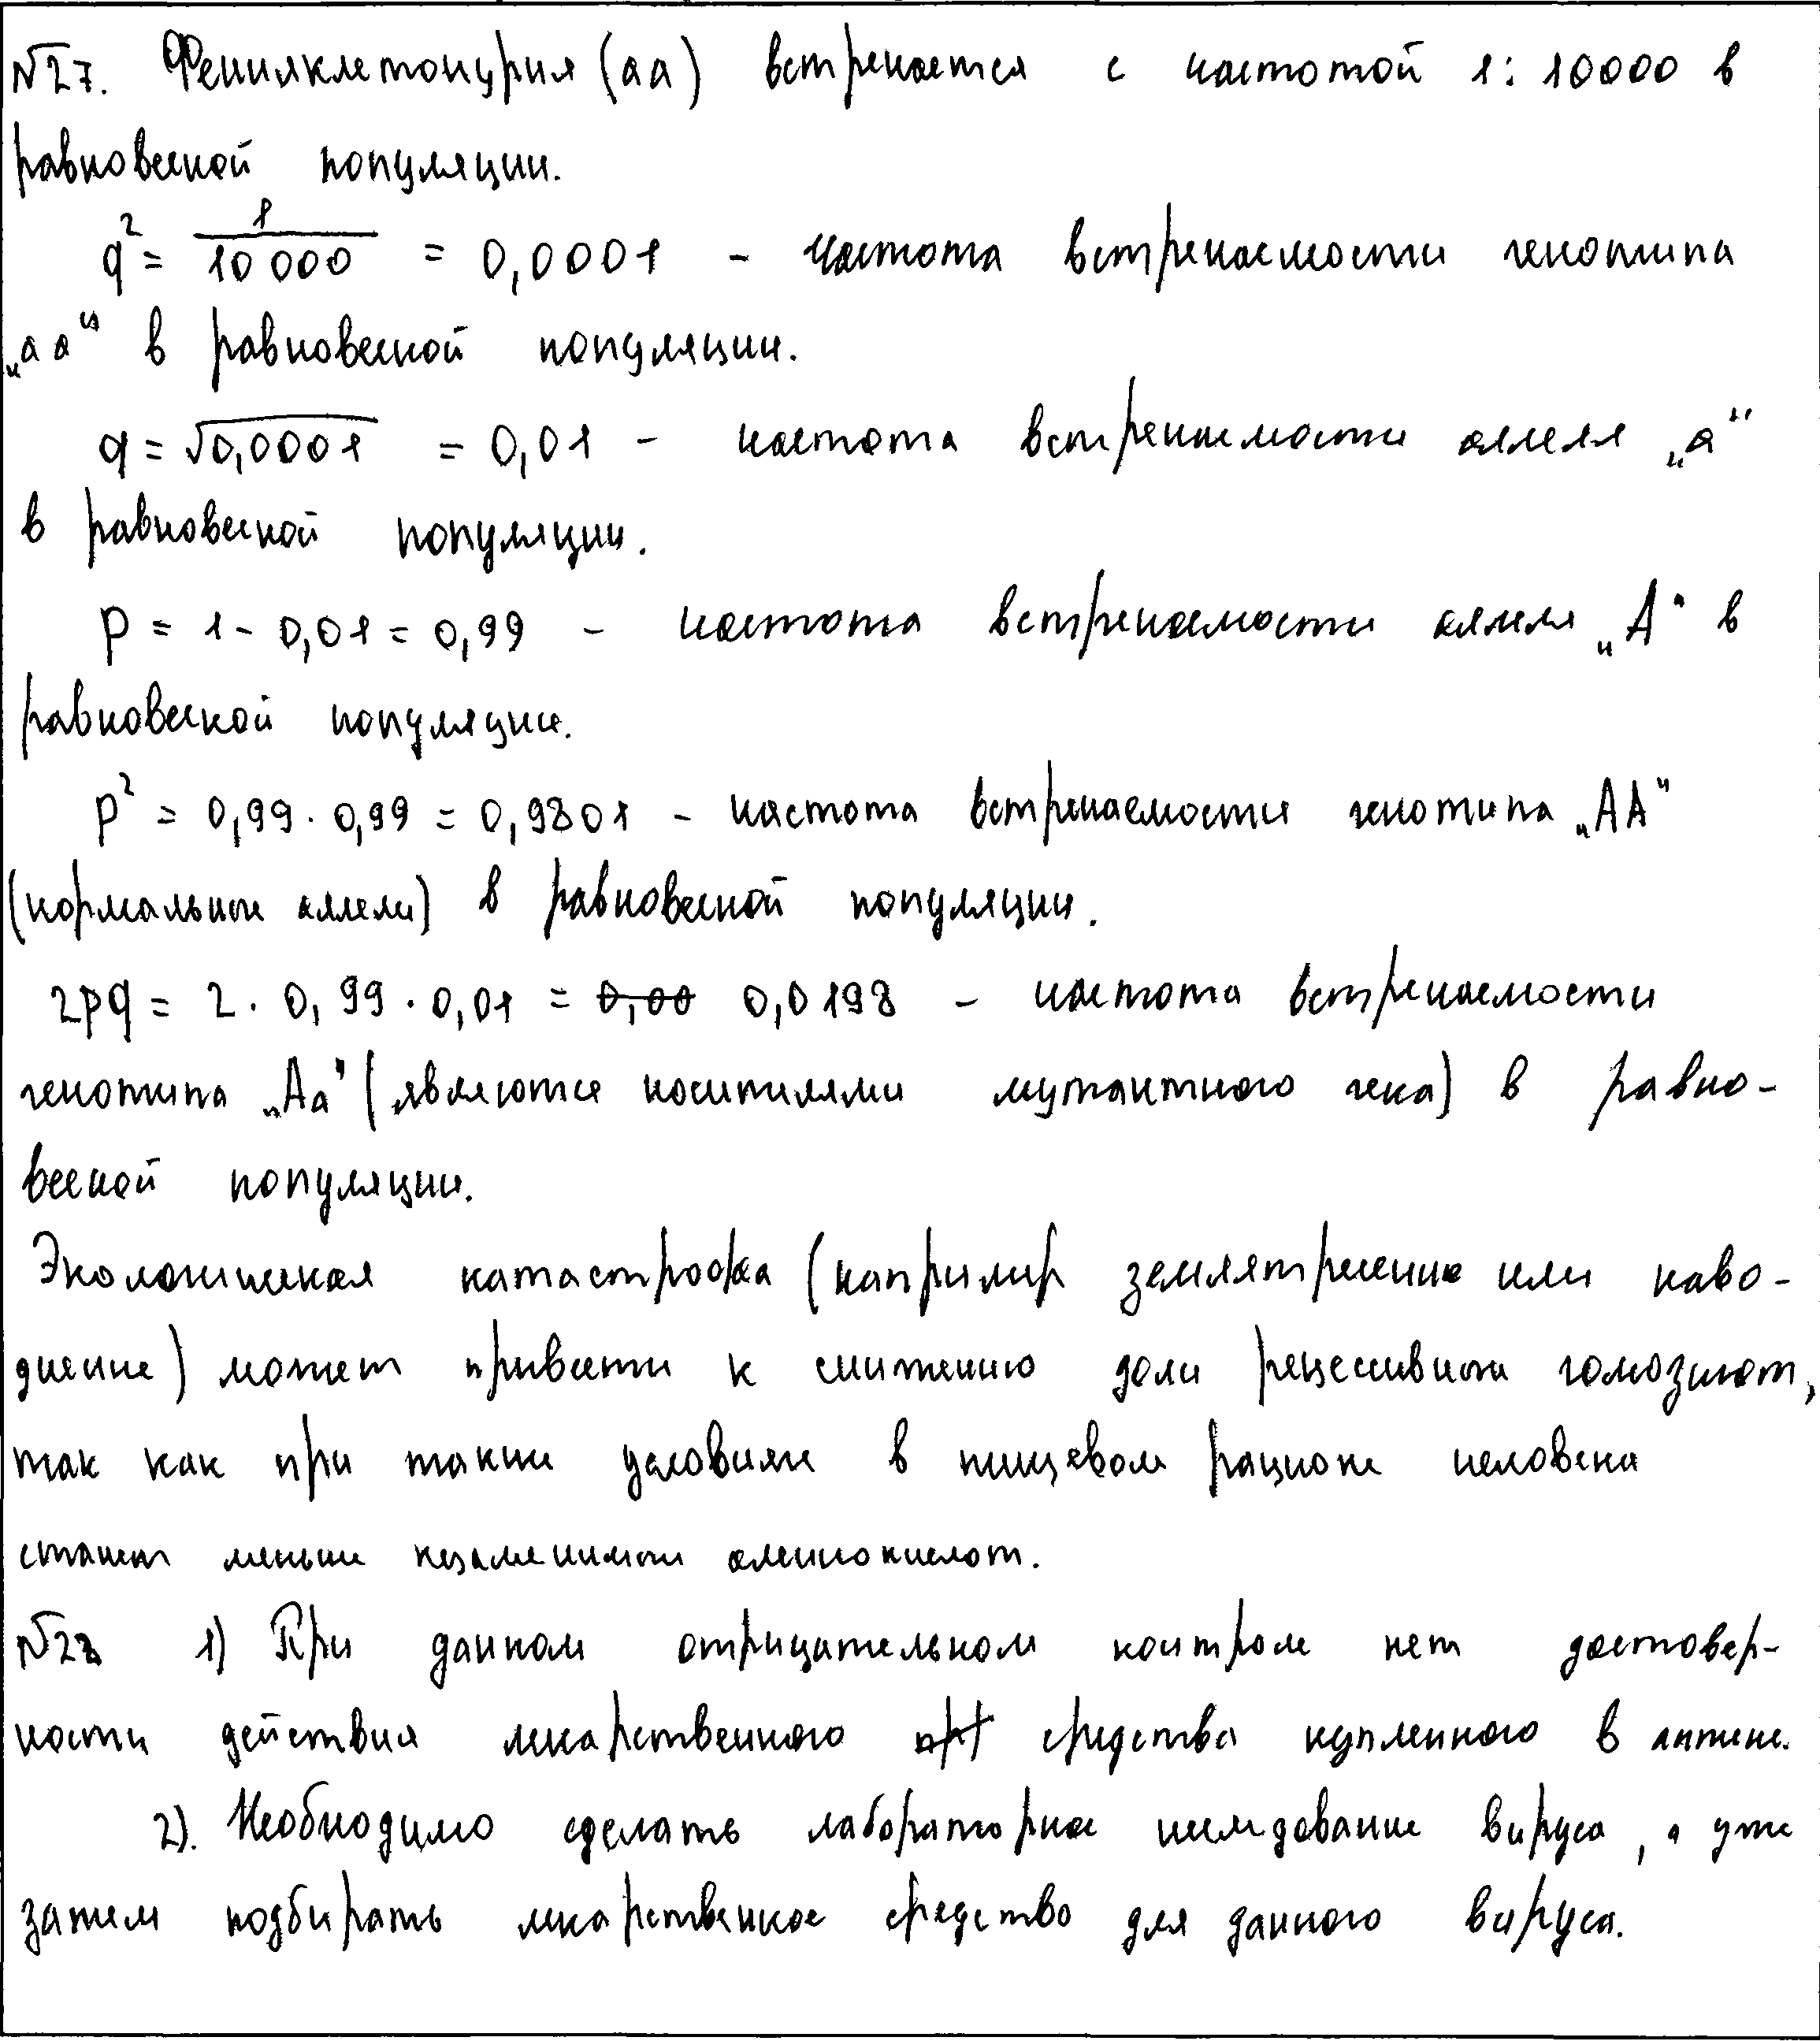 №27. Фенилклетонурия (аа) встречается с частотой 1:10000 в
равновесной популяции.
q² = 1/10 000 = 0,0001 - частота встречаемости генотипа
„аа" в равновесной популяции.
q = √0,0001 = 0,01 - частота встречаемости аллеля „а"
в равновесной популяции.
p = 1 - 0,01 = 0,99 - частота встречаемости аллеля „А" в
равновесной популяции.
p² = 0,99 · 0,99 = 0,9801 - частота встречаемости генотипа „АА"
(нормальные аллели) в равновесной популяции.
2pq = 2 · 0,99 · 0,01 = 0,00 0,0198 - частота встречаемости
генотипа „Аа" (являются носителями мутантного гена) в равно-
весной популяции.
Экологическая катастрофа (например землятресение или наво-
днение) может привести к снижению доли рецессивных гомозигот,
так как при таких условиях в пищевом рационе человека
станет меньше незаменимых аминокислот.
№28 1) При данном отрицательном контроле нет достовер-
ности действия лекарственного средства купленного в аптеке.
2). Необходимо сделать лабораторное исследование вируса, а уже
затем подбирать лекарственное средство для данного вируса.